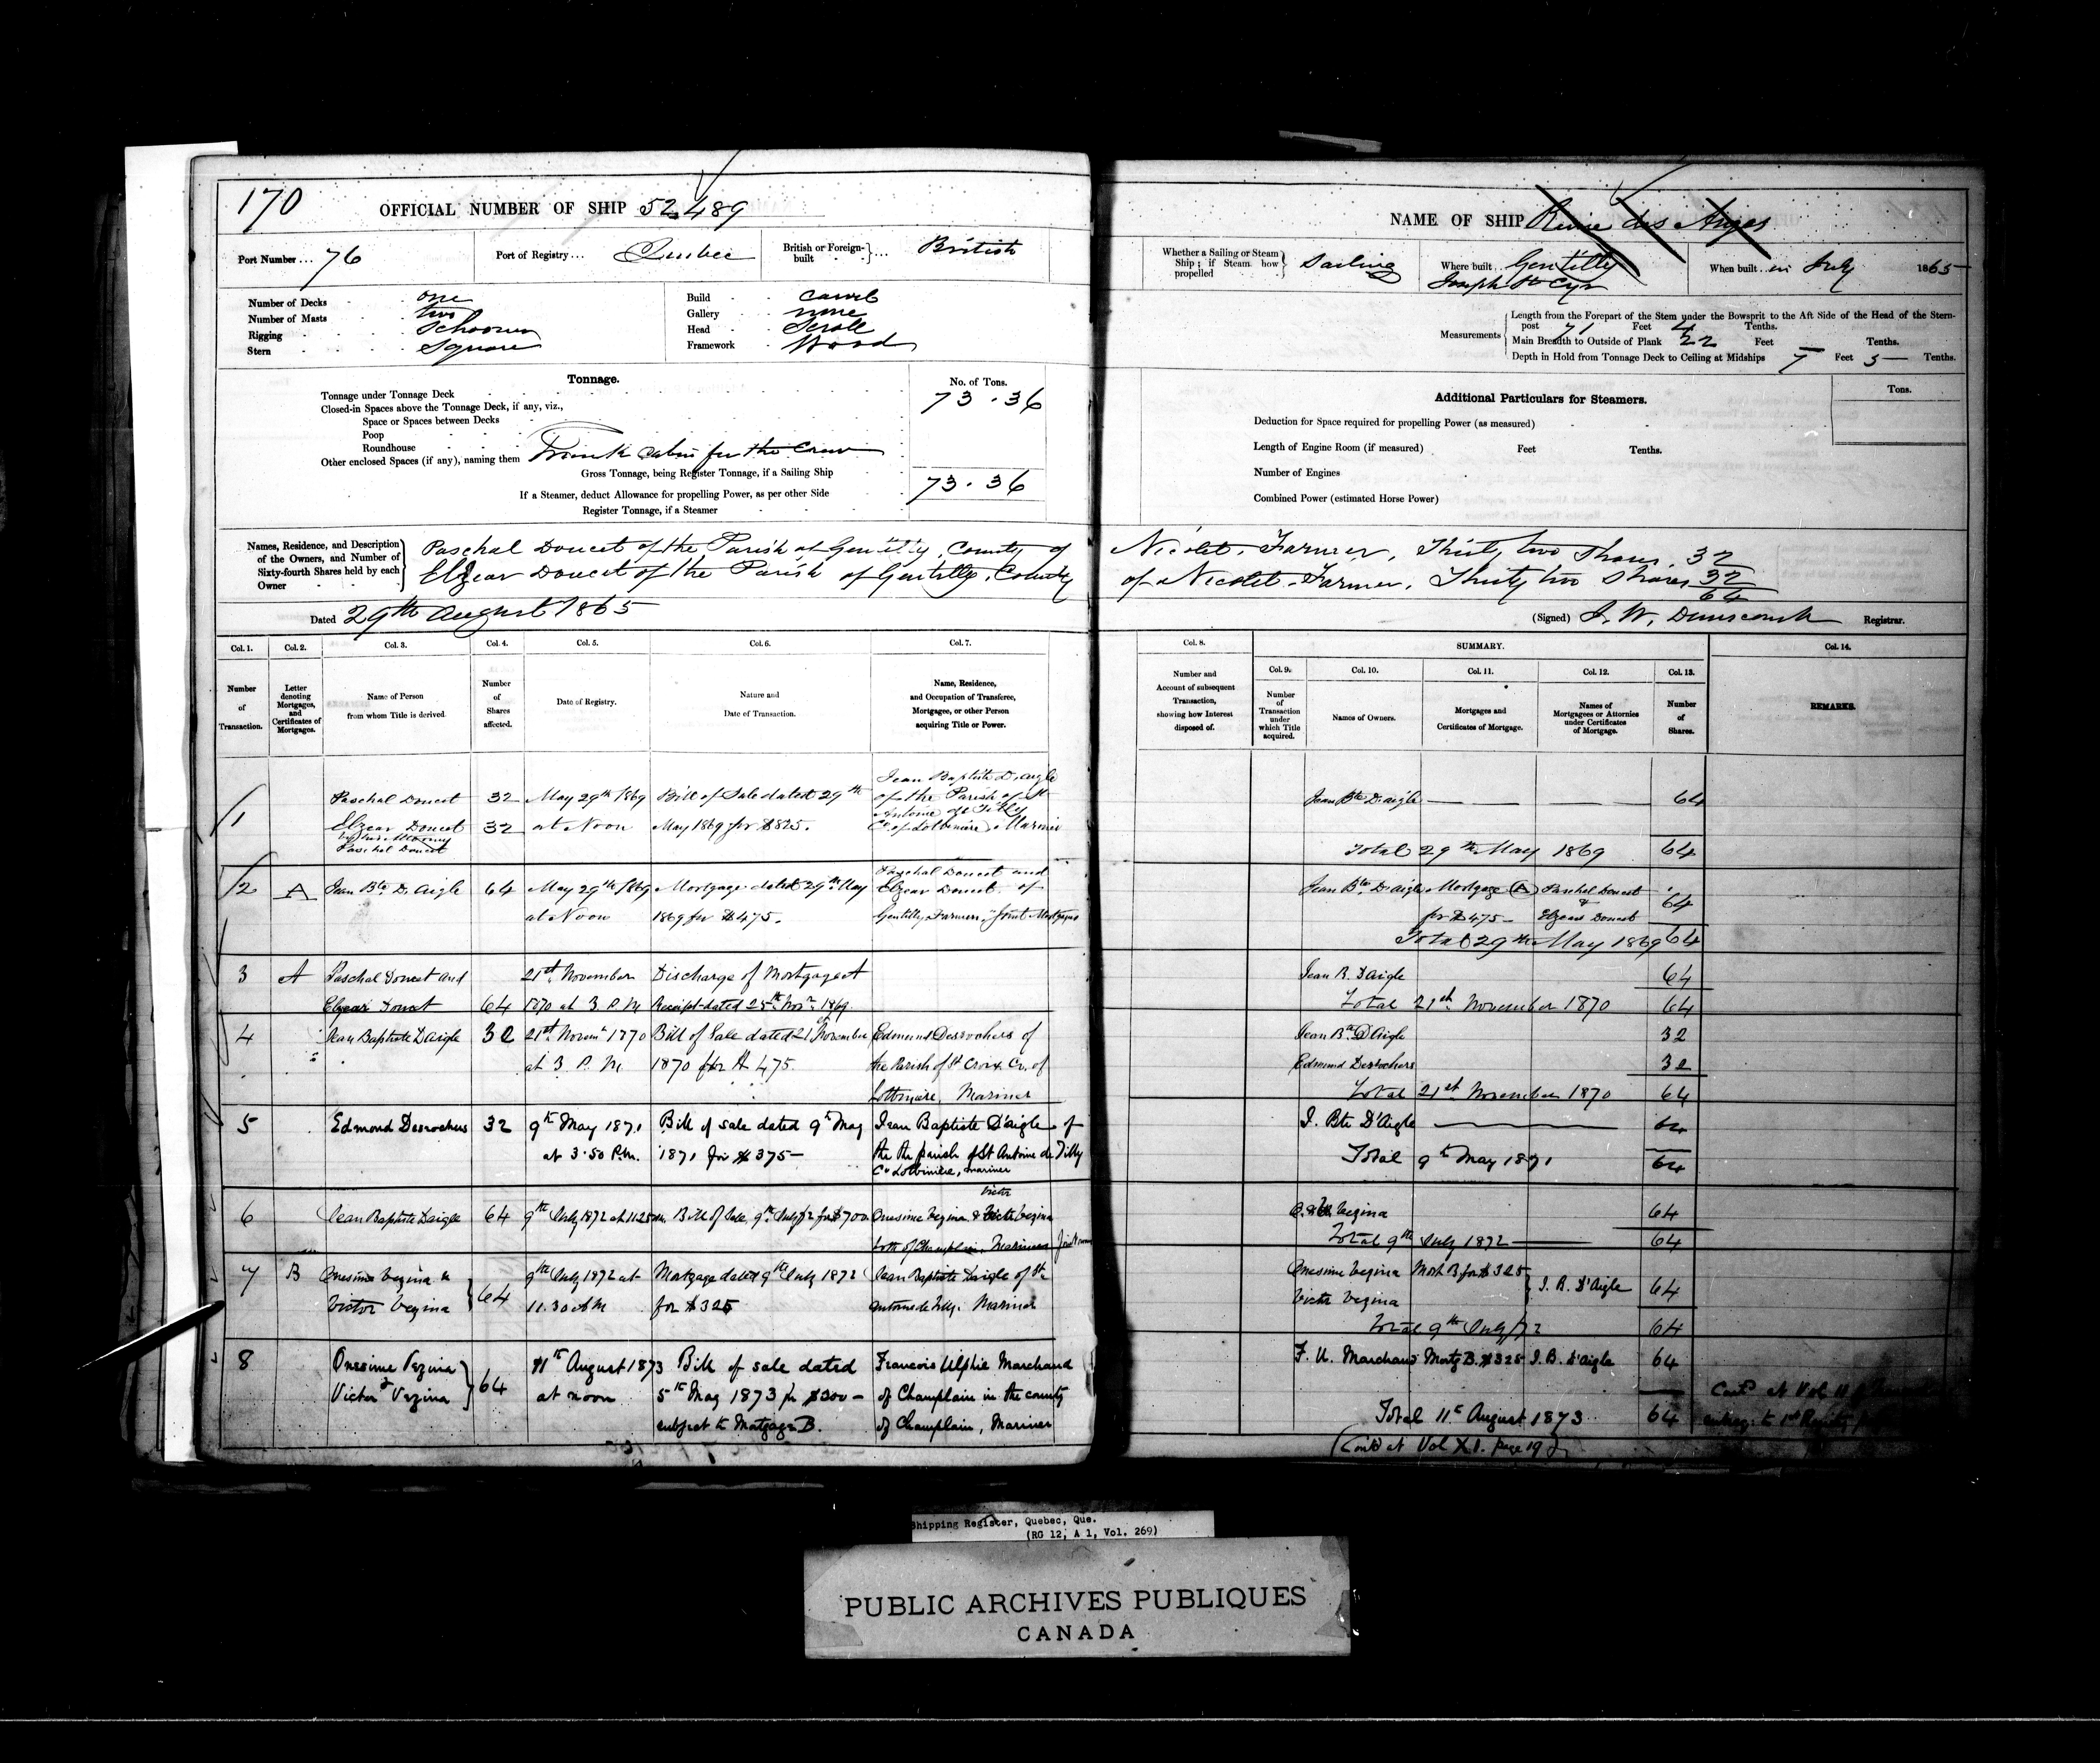 170
OFFICIAL NUMBER OF SHIP 52,489
Port Number ... 76
Port of Registry ... Quebec
British or Foreign-built ... British
Number of Decks one
Number of Masts two
Rigging Schooner
Stern Square
Build Carvel
Gallery none
Head Scroll
Framework Wood
Tonnage.
No. of Tons.
Tonnage under Tonnage Deck 73.36
Closed-in Spaces above the Tonnage Deck, if any, viz.,
Space or Spaces between Decks
Poop
Roundhouse
Other enclosed Spaces (if any), naming them Trunk Cabin for the Crew
Gross Tonnage, being Register Tonnage, if a Sailing Ship 73.36
If a Steamer, deduct Allowance for propelling Power, as per other Side
Register Tonnage, if a Steamer
NAME OF SHIP Reine des Anges
Whether a Sailing or Steam Ship; if Steam how propelled Sailing
Where built .. Gentilly
Joseph St Cyr
When built .. in July 1865
Measurements
Length from the Forepart of the Stem under the Bowsprit to the Aft Side of the Head of the Stern-
post 71 Feet 4 Tenths.
Main Breadth to Outside of Plank 22 Feet Tenths.
Depth in Hold from Tonnage Deck to Ceiling at Midships 7 Feet 5 Tenths.
Additional Particulars for Steamers.
Tons.
Deduction for Space required for propelling Power (as measured)
Length of Engine Room (if measured) Feet Tenths.
Number of Engines
Combined Power (estimated Horse Power)
Names, Residence, and Description of the Owners, and Number of Sixty-fourth Shares held by each Owner
Paschal Doucet of the Parish of Gentilly, County of Nicolet, Farmer, Thirty two Shares, 32
Elzear Doucet of the Parish of Gentilly, County of Nicolet, Farmer, Thirty two Shares 32
64
Dated 29th August 1865
(Signed) J. W. Dunscomb Registrar.
Col. 1. Col. 2. Col. 3. Col. 4. Col. 5. Col. 6. Col. 7.
Number of Transaction.
Letter denoting Mortgages, and Certificates of Mortgages.
Name of Person from whom Title is derived.
Number of Shares affected.
Date of Registry.
Nature and Date of Transaction.
Name, Residence, and Occupation of Transferee, Mortgagee, or other Person acquiring Title or Power.
Col. 8. SUMMARY. Col. 14.
Col. 9. Col. 10. Col. 11. Col. 12. Col. 13.
Number and Account of subsequent Transaction, showing how Interest disposed of.
Number of Transaction under which Title acquired.
Names of Owners.
Mortgages and Certificates of Mortgage.
Names of Mortgagees or Attornies under Certificates of Mortgage.
Number of Shares.
REMARKS.
1 Paschal Doucet 32
Elzear Doucet 32
by his Attorney
Paschal Doucet
May 29th 1869
at Noon
Bill of Sale dated 29th
May 1869 for $825.
Jean Baptiste D'aigle
of the Parish of St
Antoine de Tilly
Co. of Lotbiniere, Mariner
Jean Bte D'aigle 64
Total 29th May 1869 64
2 A Jean Bte D'Aigle 64
May 29th 1869
at Noon
Mortgage dated 29th May
1869 for $475.
Paschal Doucet and
Elzear Doucet of
Gentilly, Farmers, Joint Mortgagees
Jean Bte D'aigle Mortgage (A) Paschal Doucet
for $475 & Elzear Doucet 64
Total 29th May 1869 64
3 A Paschal Doucet and
Elzear Doucet 64
21st November
1870 at 3 P.M
Discharge of Mortgage A
Receipt dated 25th Novr 1869.
Jean B. D'aigle 64
Total 21st November 1870 64
4 Jean Baptiste D'aigle 32
21st Novemr 1870
at 3 P.M.
Bill of Sale dated 21st November
1870 for $475.
Edmund Desrochers of
the Parish of St Croix, Co. of
Lotbiniere, Mariner
Jean Bte D'Aigle 32
Edmund Desrochers 32
Total 21st November 1870 64
5 Edmond Desrochers 32
9th May 1871
at 3.50 P.M.
Bill of sale dated 9th May
1871 for $375—
Jean Baptiste D'aigle of
the the parish of St Antoine de Tilly
Co Lotbiniere, mariner
J. Bte D'Aigle 64
Total 9th May 1871 64
6 Jean Baptiste Daigle 64
9th July 1872 at 11.25
Bill of Sale 9th July /72 for $700
Onesime Vezina & Victor Vezina
both of Champlain, Mariners Joint owners
Vezina 64
Total 9th July 1872 64
7 B Onesime Vezina &
Victor Vezina 64
9th July 1872 at
11.30 AM
Mortgage dated 9th July 1872
for $325
Jean Baptiste Daigle of St.
Antoine de Tilly. Mariner
Onesime Vezina Mort B for $325
Victor Vezina J. B. D'Aigle 64
Total 9th July /72 64
8 Onesime Vezina
& Victor Vezina 64
11th August 1873
at noon
Bill of sale dated
5th May 1873 for $300—
subject to Mortgage B.
Francois Ulphie Marchand
of Champlain in the county
of Champlain, Mariner
F. U. Marchand Mortg B. $325 J. B. D'Aigle 64
Total 11th August 1873 64
(Contd at Vol XI. page 19
Shipping Register, Quebec, Que.
(RG 12, A 1, Vol. 269)
PUBLIC ARCHIVES PUBLIQUES
CANADA